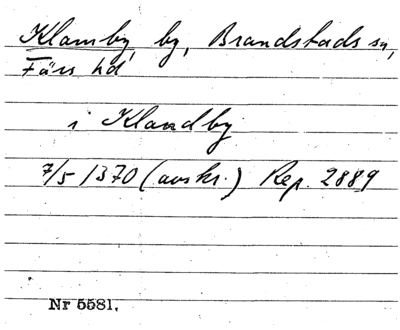 Klamby, by, Brandstads sn,
Färs hd
i Klandby
7/5 1370 (avskr.) Rep. 2889
Nr 5581.